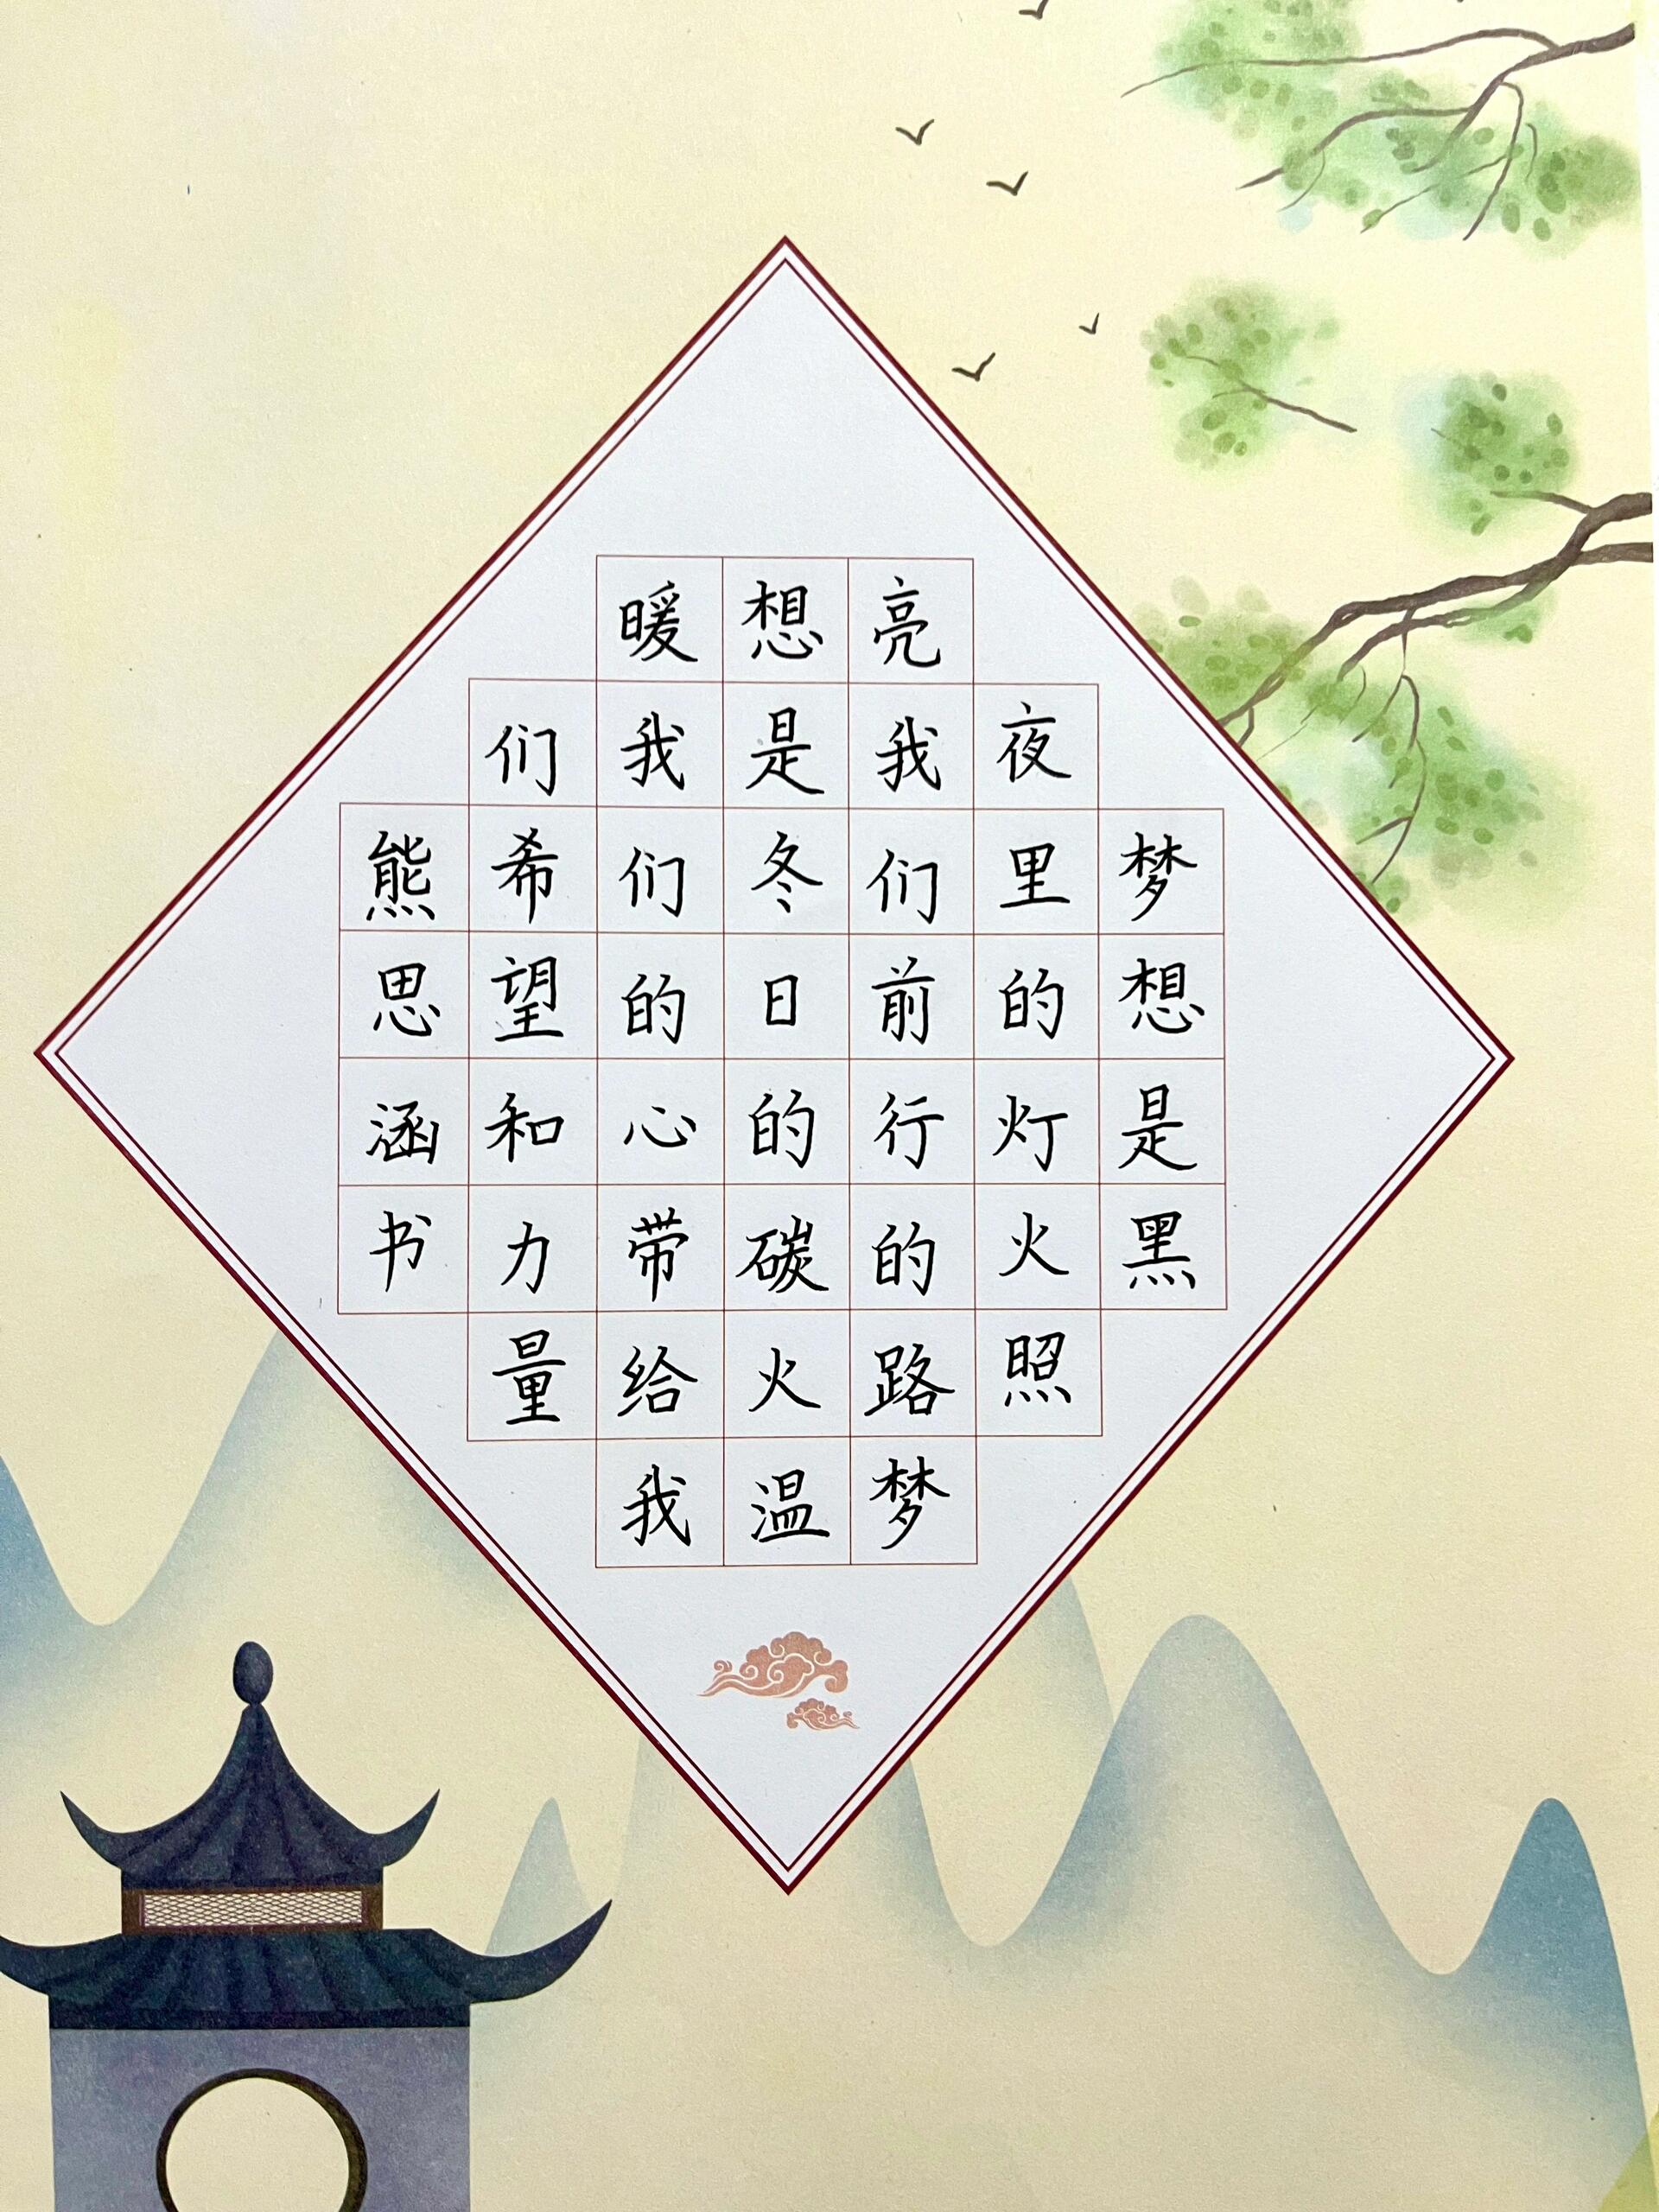 梦想是黑
夜里的灯火照
亮我们前行的路梦
想是冬日的碳火温
暖我们的心带给我
们希望和力量
熊思涵书